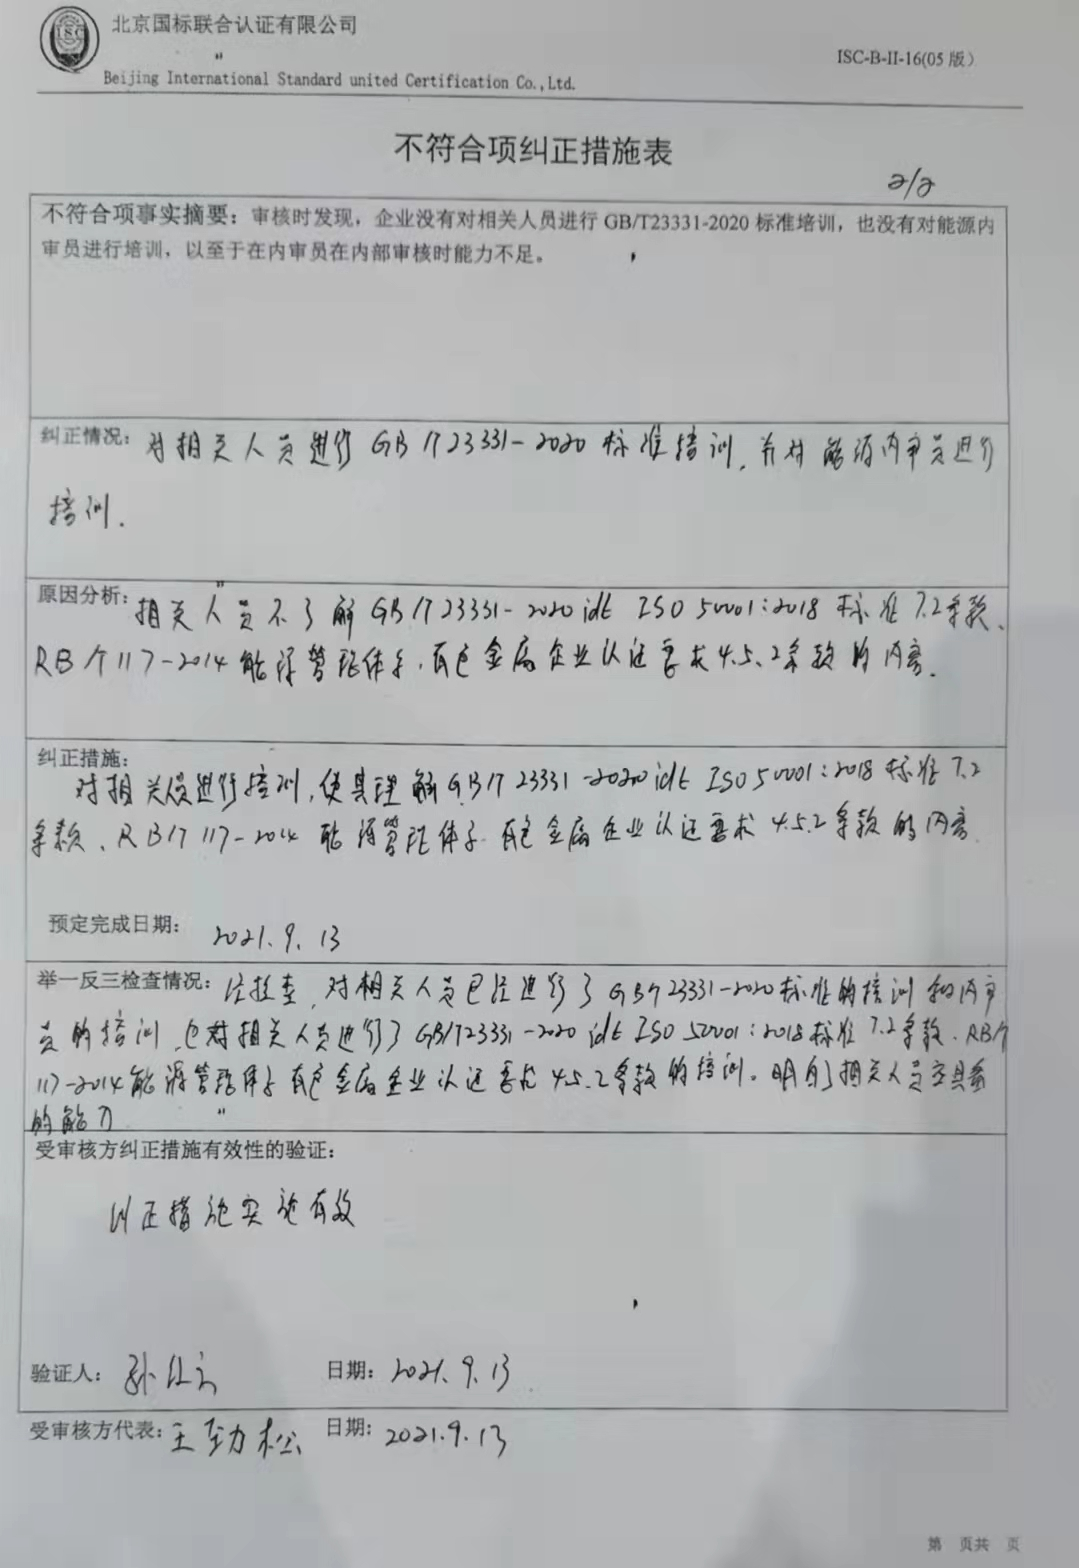 ISC
北京国标联合认证有限公司
Beijing International Standard united Certification Co.,Ltd.
ISC-B-II-16(05 版)
不符合项纠正措施表
2/2
不符合项事实摘要：审核时发现，企业没有对相关人员进行 GB/T23331-2020 标准培训，也没有对能源内
审员进行培训，以至于在内审员在内部审核时能力不足。
纠正情况：对相关人员进行 GB/T23331-2020 标准培训，并对能源内审员进行
培训.
原因分析：相关人员不了解 GB/T23331-2020 idt ISO 50001:2018 标准 7.2条款、
RB/T 117-2014 能源管理体系.有色金属企业认证要求 4.5.2条款的内容.
纠正措施：
对相关员进行培训,使其理解 GB/T 23331-2020 idt ISO 50001:2018 标准 7.2
条款、RB/T 117-2014 能源管理体系 有色金属企业认证要求 4.5.2 条款的内容.
预定完成日期： 2021.9.13
举一反三检查情况：经检查,对相关人员已经进行了 GB/T 23331-2020标准的培训和内审
员的培训,也对相关人员进行了 GB/T23331-2020 idt ISO 50001:2018标准 7.2条款、RB/T
117-2014能源管理体系 有色金属企业认证要求 4.5.2条款的培训。明白了相关人员应具备
的能力
受审核方纠正措施有效性的验证：
纠正措施实施有效
验证人： 孙 日期：2021.9.13
受审核方代表：王劲松 日期：2021.9.13
第 页共 页